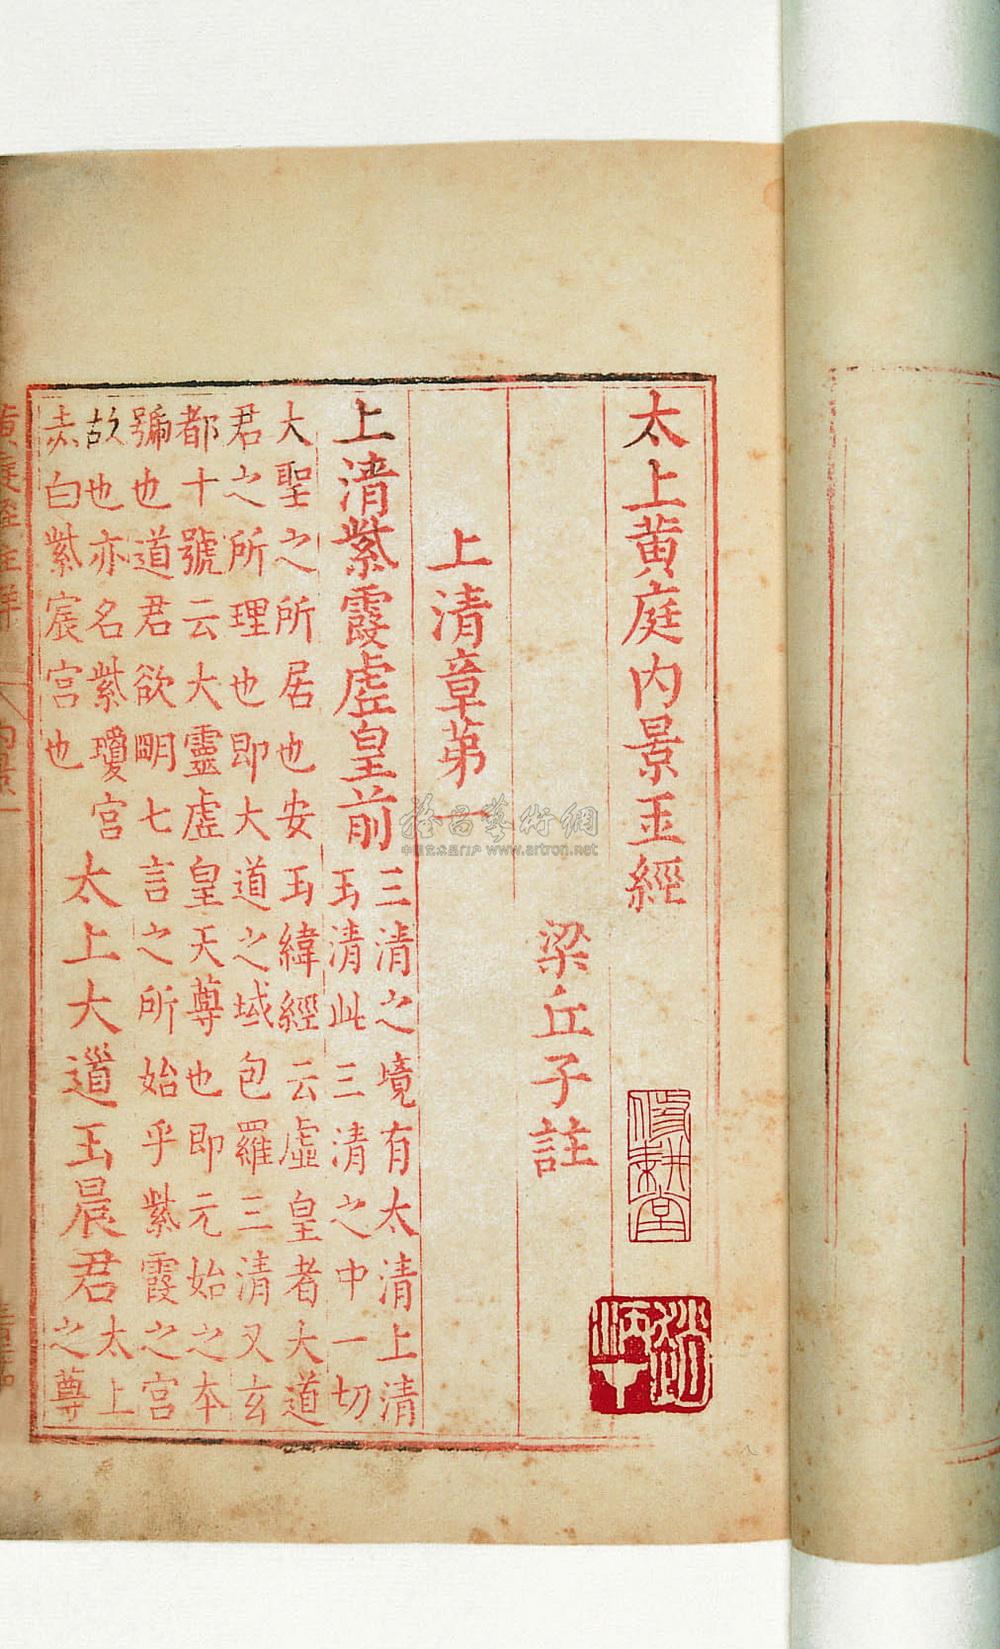 太上黃庭內景玉經
梁丘子註
上清章第一
上清紫霞虛皇前
三清之境有太清上清
玉清此三清之中一切
大聖之所居也安玉緯經云虛皇者大道
君之所理也即大道之域包羅三清又玄
都十號云大靈虛皇天尊也即元始之本
號也道君欲明七言之所始乎紫霞之宮
故也亦名紫瓊宮
太上大道玉晨君
太上
之尊
赤白紫宸宮也
脩耕堂
雅昌藝術網
中国艺术品门户 www.artron.net